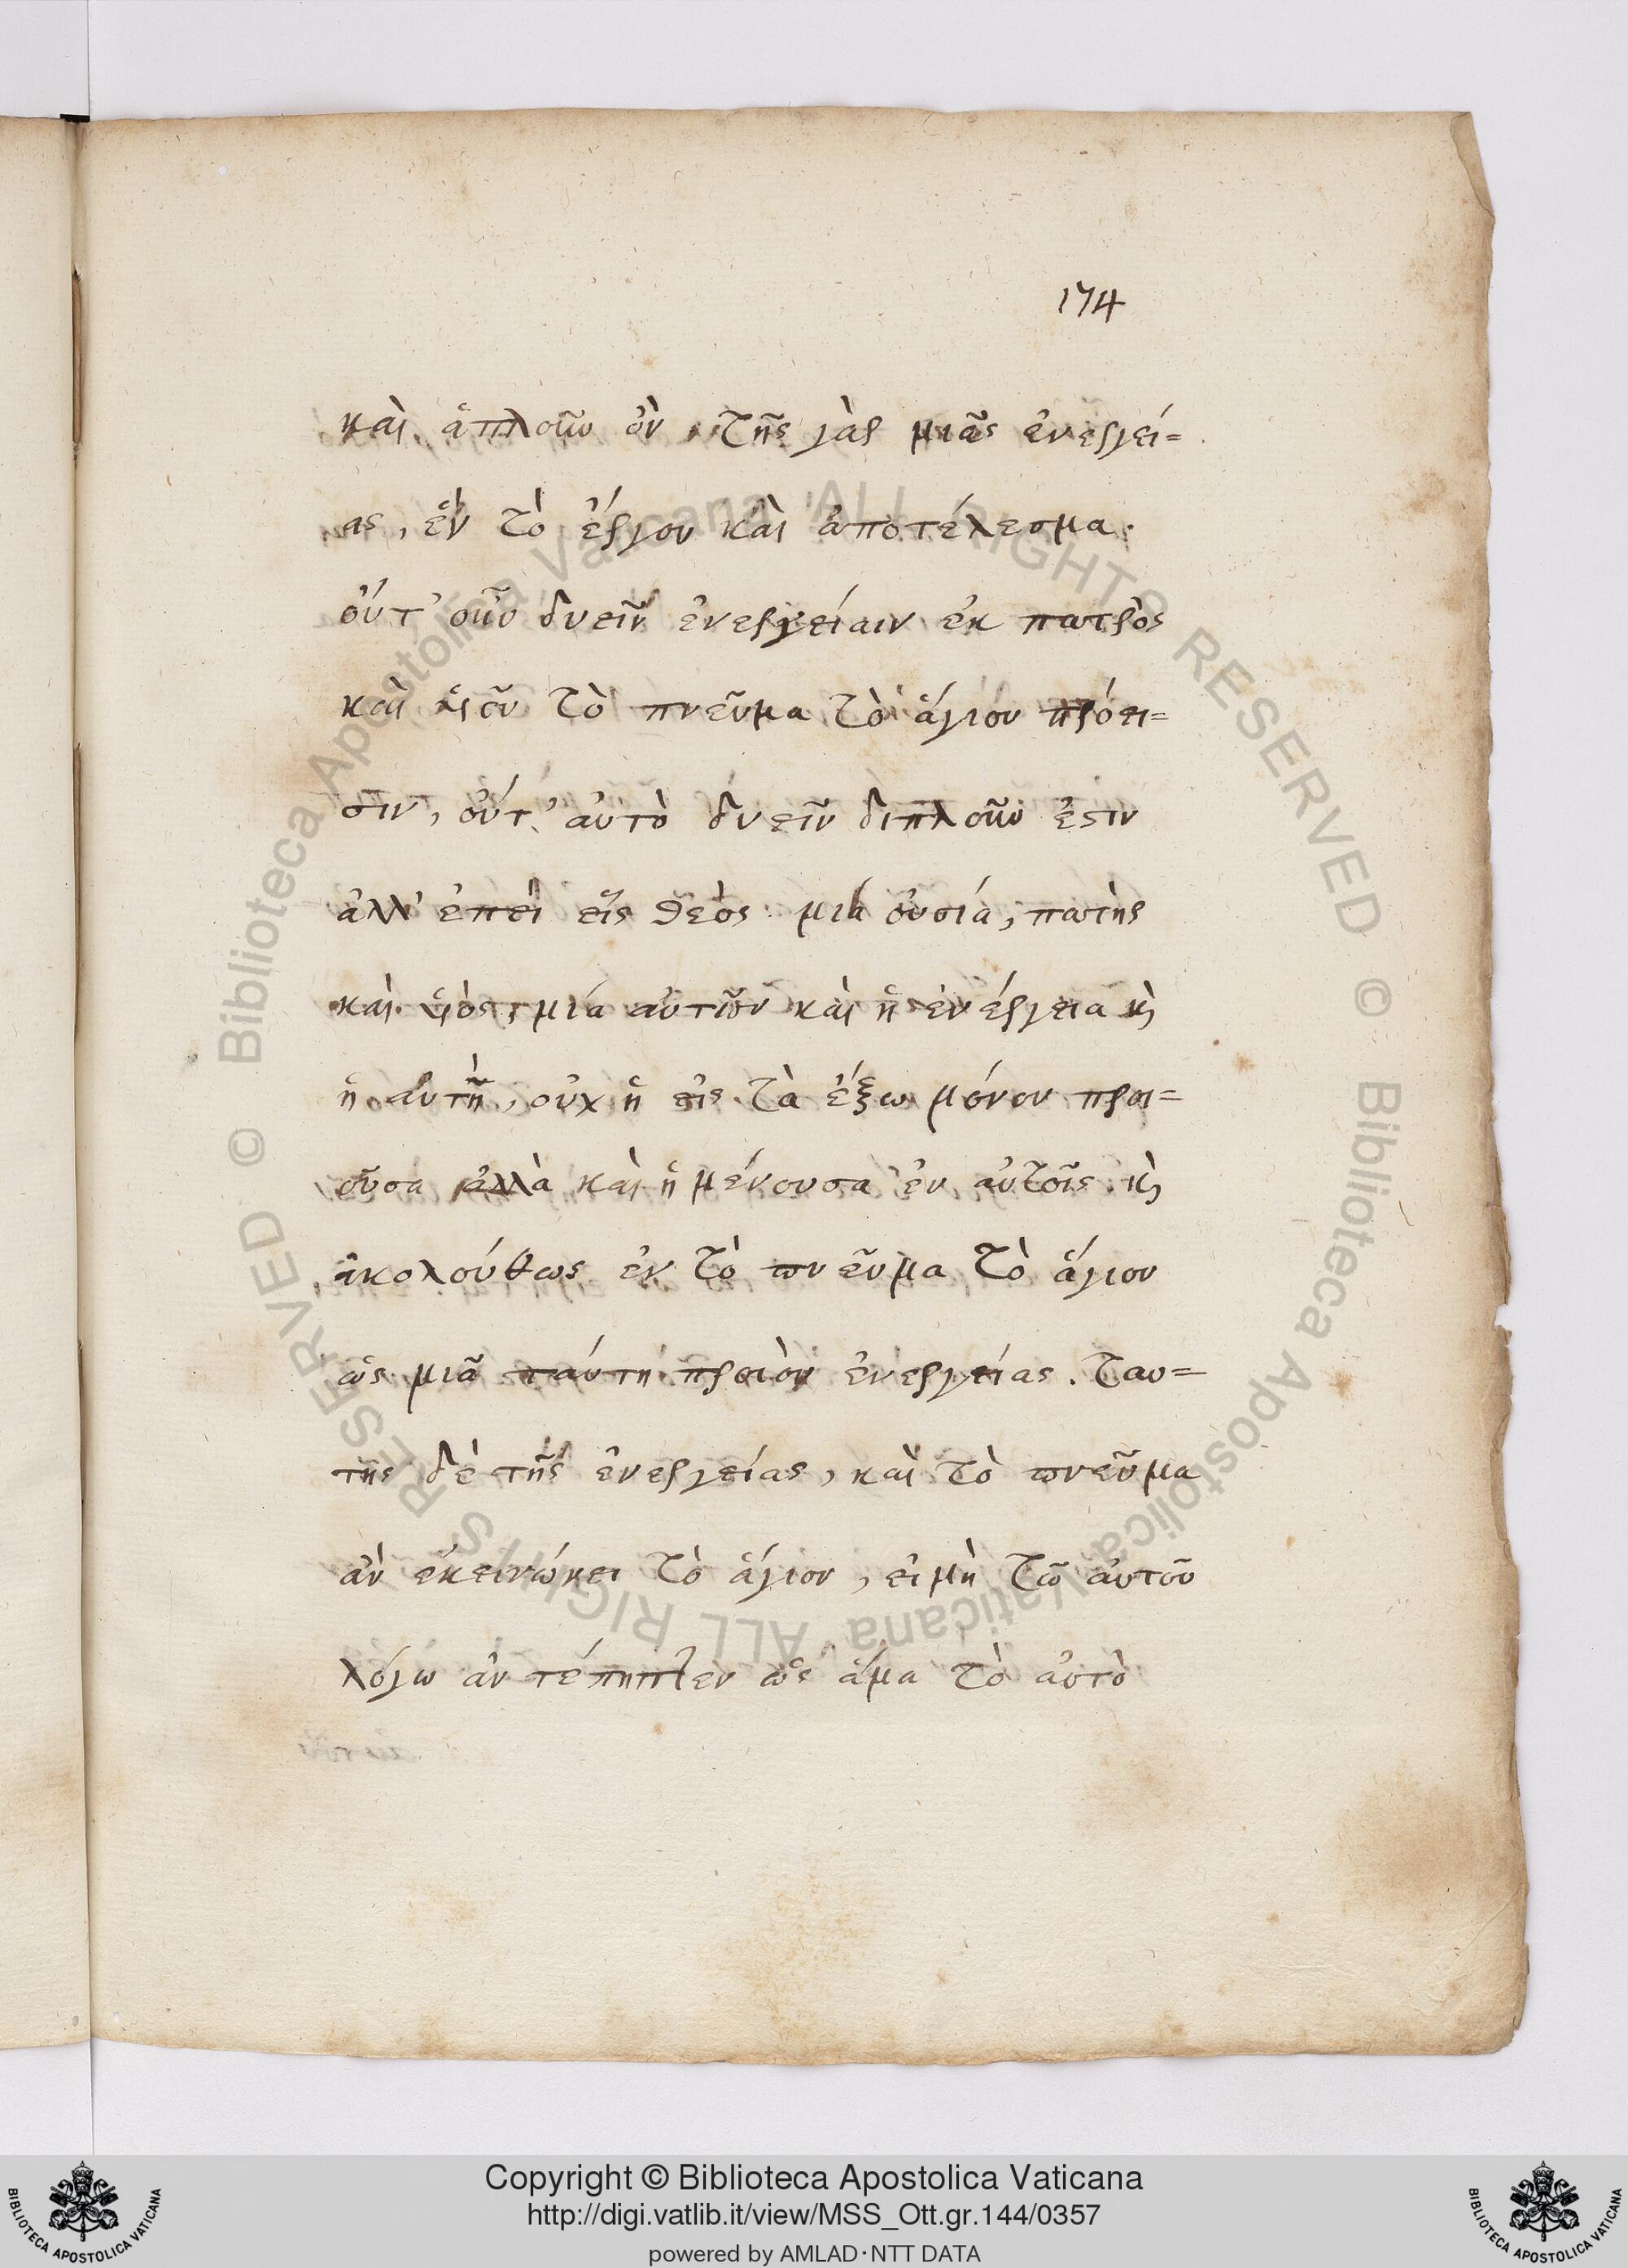 174
καὶ ἁπλοῦν ὄν. τῆς γὰρ μιᾶς ἐνεργεί=
ας, ἓν τὸ ἔργον καὶ ἀποτέλεσμα.
οὔτ' οὖν δυεῖν ἐνεργείαιν ἐκ πατρὸς
καὶ υἱοῦ τὸ πνεῦμα τὸ ἅγιον πρόει=
σιν, οὔτ' αὐτὸ δυεῖν διπλοῦν ἐστιν
ἀλλ' ἐπεὶ εἷς θεὸς μία οὐσία, πατὴρ
καὶ υἱὸς, μία αὐτῶν καὶ ἡ ἐνέργεια κὶ
ἡ αὐτὴ, οὐχ ἡ εἰς τὰ ἔξω μόνον προι=
οῦσα ἀλλὰ καὶ ἡ μένουσα ἐν αὐτοῖς. κὶ
ἀκολούθως ἐν τὸ πνεῦμα τὸ ἅγιον
ὡς μιᾶ ταύτη προιὸν ἐνεργείας. ταυ=
της δὲ τῆς ἐνεργείας, καὶ τὸ πνεῦμα
ἂν ἐκεινώνει τὸ ἅγιον, εἰ μὴ τῶ αὐτοῦ
λόγω ἀν τέπηπτεν ὡς ἅμα τὸ αὐτὸ
© Biblioteca Apostolica Vaticana ALL RIGHTS RESERVED © Biblioteca Apostolica Vaticana ALL RIGHTS RESERVED
Copyright © Biblioteca Apostolica Vaticana
http://digi.vatlib.it/view/MSS_Ott.gr.144/0357
powered by AMLAD·NTT DATA
BIBLIOTECA APOSTOLICA VATICANA
BIBLIOTECA APOSTOLICA VATICANA